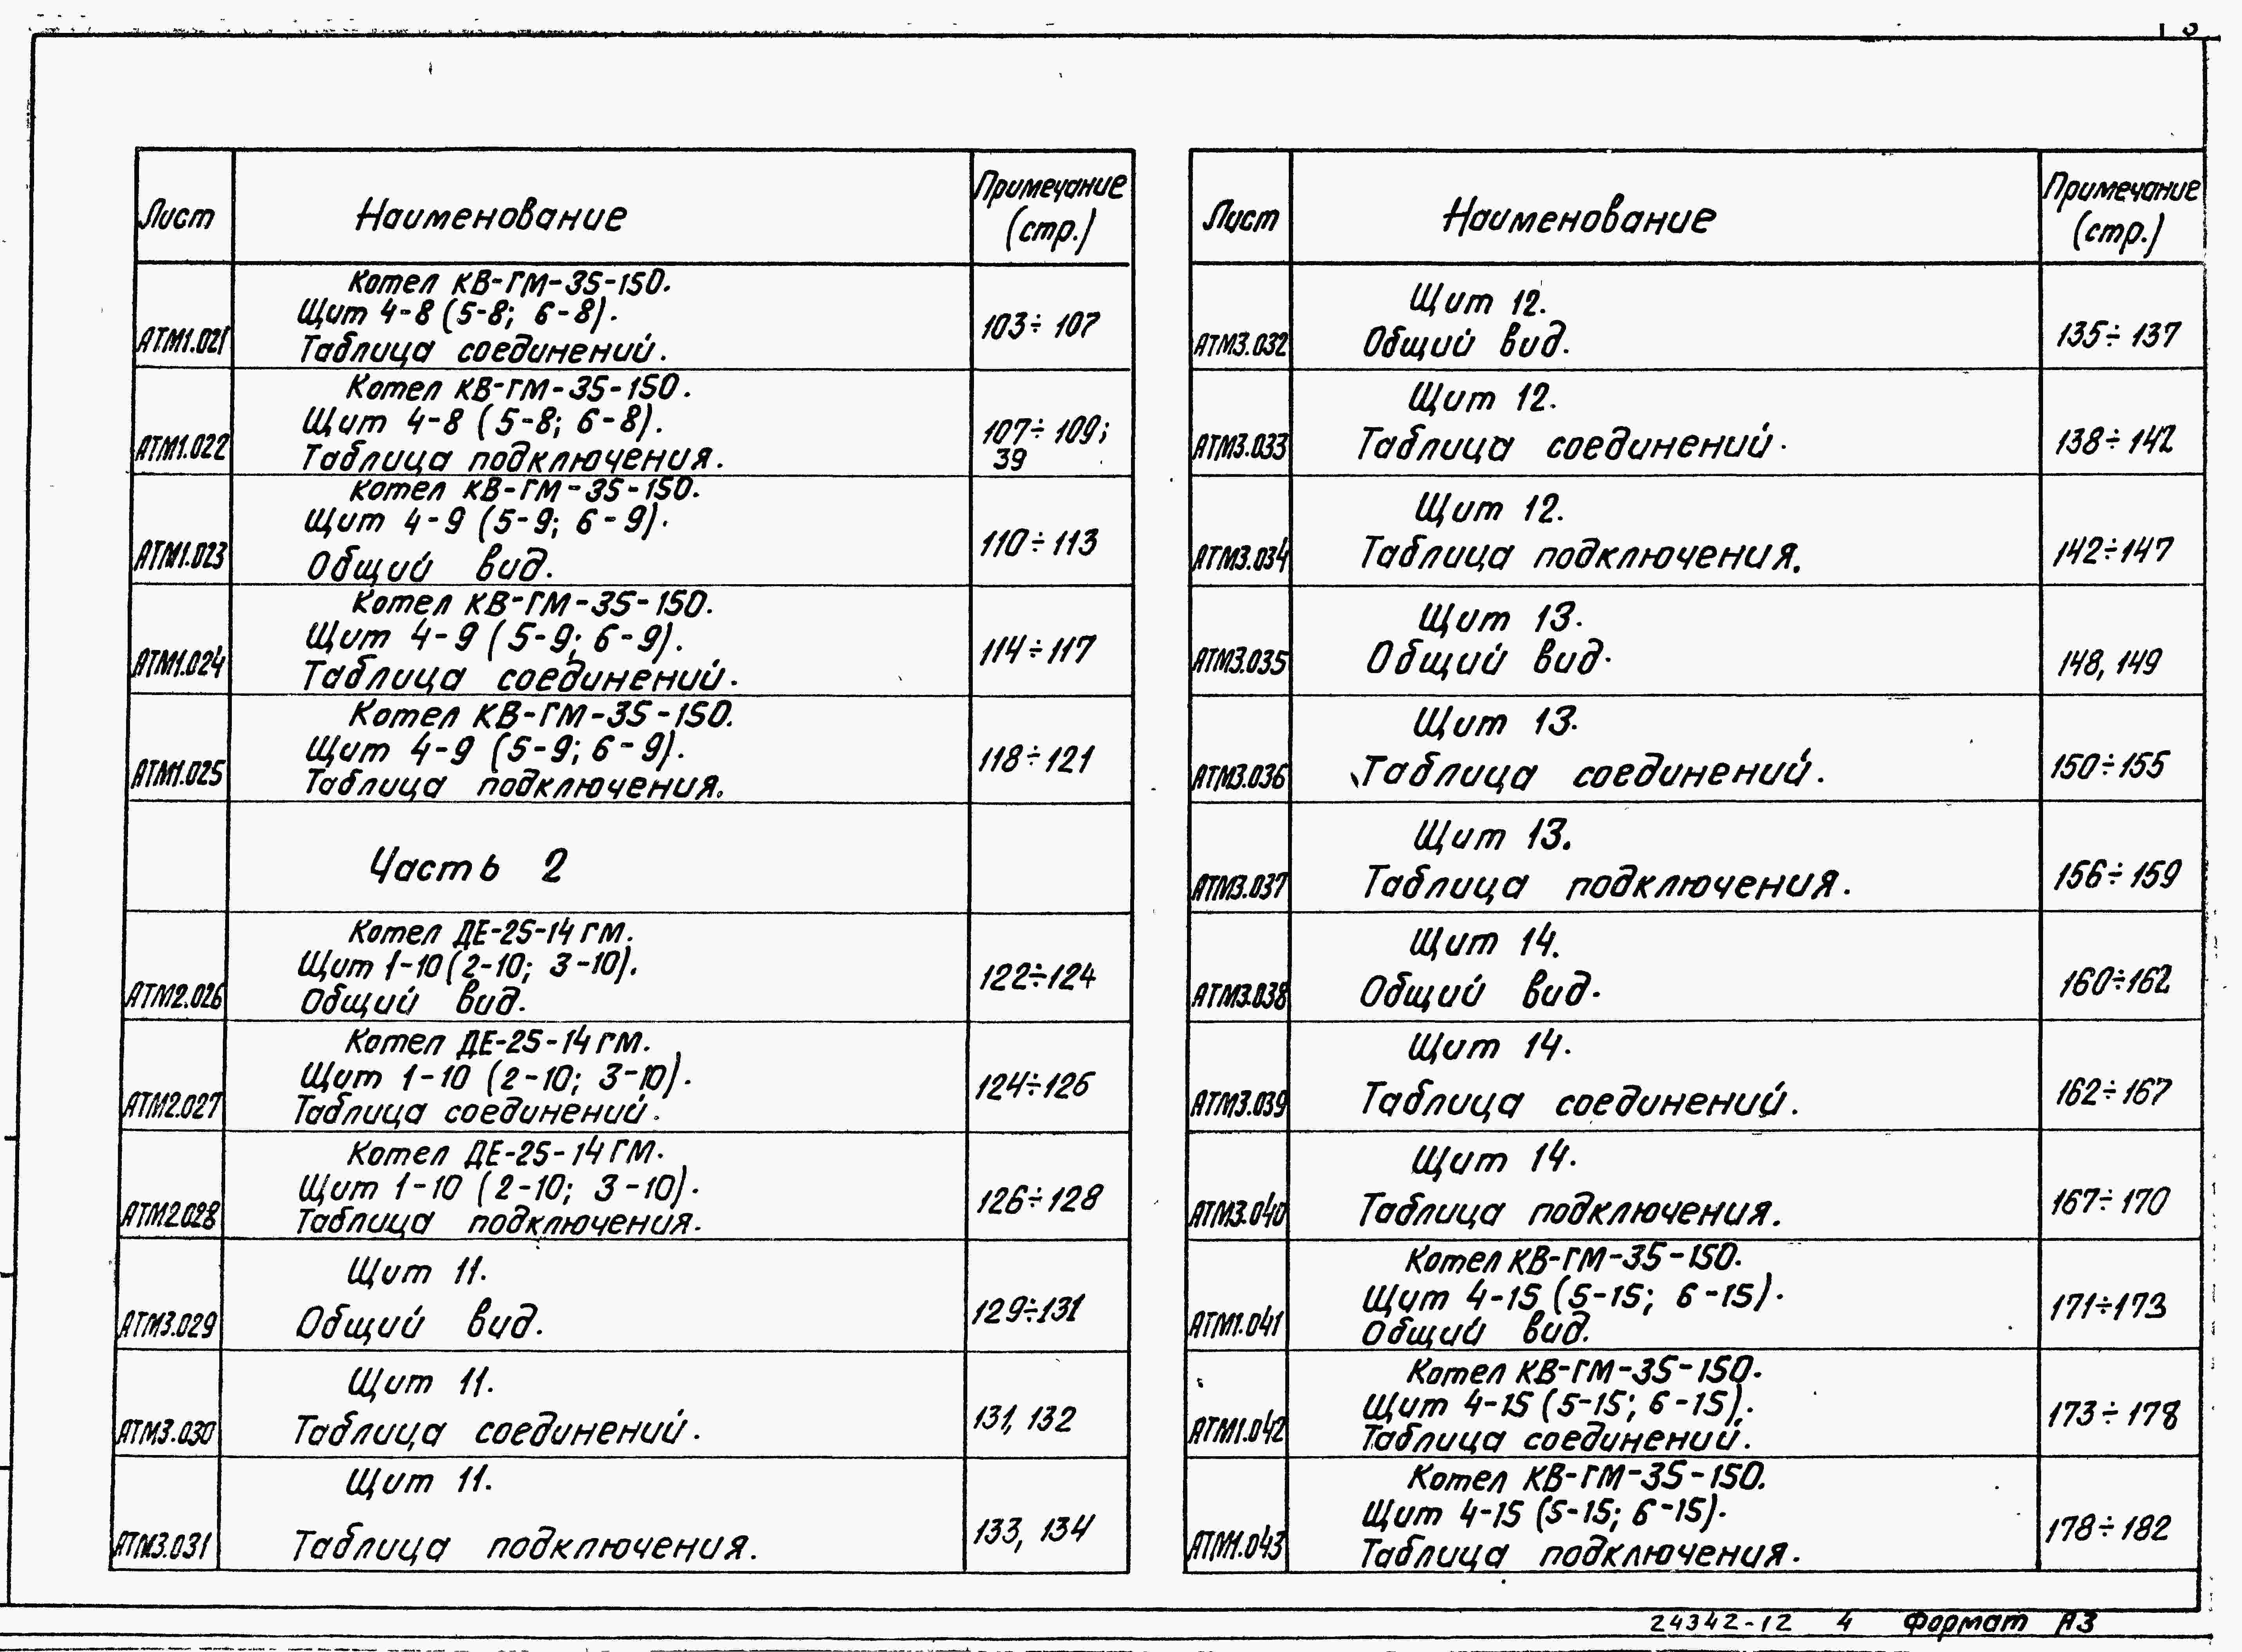 Лист
Наименование
Примечание
(стр.)
АТМ1.021
Котел КВ-ГМ-35-150.
Щит 4-8 (5-8; 6-8).
Таблица соединений.
103÷107
АТМ1.022
Котел КВ-ГМ-35-150.
Щит 4-8 (5-8; 6-8).
Таблица подключения.
107÷109;
39
АТМ1.023
Котел КВ-ГМ-35-150.
Щит 4-9 (5-9; 6-9).
Общий вид.
110÷113
АТМ1.024
Котел КВ-ГМ-35-150.
Щит 4-9 (5-9; 6-9).
Таблица соединений.
114÷117
АТМ1.025
Котел КВ-ГМ-35-150.
Щит 4-9 (5-9; 6-9).
Таблица подключения.
118÷121
Часть 2
АТМ2.026
Котел ДЕ-25-14 ГМ.
Щит 1-10 (2-10; 3-10).
Общий вид.
122÷124
АТМ2.027
Котел ДЕ-25-14 ГМ.
Щит 1-10 (2-10; 3-10).
Таблица соединений.
124÷126
АТМ2.028
Котел ДЕ-25-14 ГМ.
Щит 1-10 (2-10; 3-10).
Таблица подключения.
126÷128
АТМ3.029
Щит 11.
Общий вид.
129÷131
АТМ3.030
Щит 11.
Таблица соединений.
131, 132
АТМ3.031
Щит 11.
Таблица подключения.
133, 134
Лист
Наименование
Примечание
(стр.)
АТМ3.032
Щит 12.
Общий вид.
135÷137
АТМ3.033
Щит 12.
Таблица соединений.
138÷142
АТМ3.034
Щит 12.
Таблица подключения.
142÷147
АТМ3.035
Щит 13.
Общий вид.
148, 149
АТМ3.036
Щит 13.
Таблица соединений.
150÷155
АТМ3.037
Щит 13.
Таблица подключения.
156÷159
АТМ3.038
Щит 14.
Общий вид.
160÷162
АТМ3.039
Щит 14.
Таблица соединений.
162÷167
АТМ3.040
Щит 14.
Таблица подключения.
167÷170
АТМ1.041
Котел КВ-ГМ-35-150.
Щит 4-15 (5-15; 6-15).
Общий вид.
171÷173
АТМ1.042
Котел КВ-ГМ-35-150.
Щит 4-15 (5-15; 6-15).
Таблица соединений.
173÷178
АТМ1.043
Котел КВ-ГМ-35-150.
Щит 4-15 (5-15; 6-15).
Таблица подключения.
178÷182
24342-12 4 Формат А3